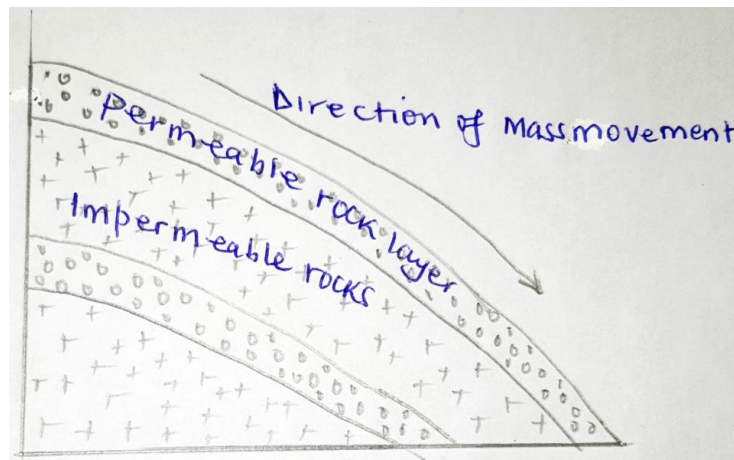 Direction of Mass movement
Permeable rock layer
Impermeable rocks